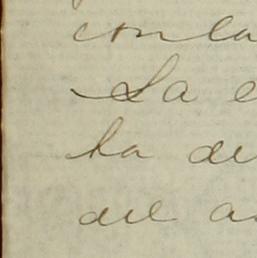 con la
La e
ha de
del a